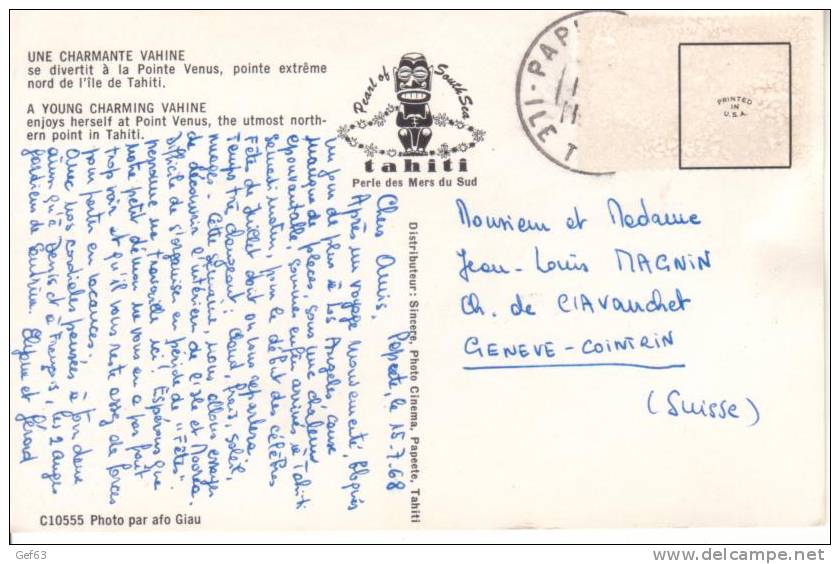 UNE CHARMANTE VAHINE
se divertit à la Pointe Venus, pointe extrême
nord de l'île de Tahiti.
A YOUNG CHARMING VAHINE
enjoys herself at Point Venus, the utmost north-
ern point in Tahiti.
Pearl of South Sea
tahiti
Perle des Mers du Sud
PAP
ILE T
PRINTED
IN
U.S.A.
Papeete, le 15.7.68
Chers Amis,
Après un voyage mouvementé, bloqués
un jour de plus à Los Angeles, cause
manque de places, sous une chaleur
épouvantable, sommes enfin arrivés à Tahiti
samedi matin, pour le début des célèbres
Fêtes de Juillet dont on vous reparlera.
Temps très changeant : chaud, frais, soleil,
nuages. Cette semaine, nous allons essayer
de découvrir l'intérieur de l'île et Moorea.
Difficile de s'organiser en période de "Fêtes"
personne ne travaille ici ! Espérons que
notre petit démon ne vous en a pas fait
trop voir et qu'il vous reste assez de forces
pour partir en vacances.
Avec nos cordiales pensées à tous deux
ainsi qu'à Denis et à François, les 2 anges
gardiens de
et Gérard
Distributeur : Sincere, Photo Cinema, Papeete, Tahiti
Monsieur et Madame
Jean-Louis MAGNIN
Ch. de Clavanchet
GENEVE-COINTRIN
(Suisse)
C10555 Photo par afo Giau
Gef63
delcampe.net